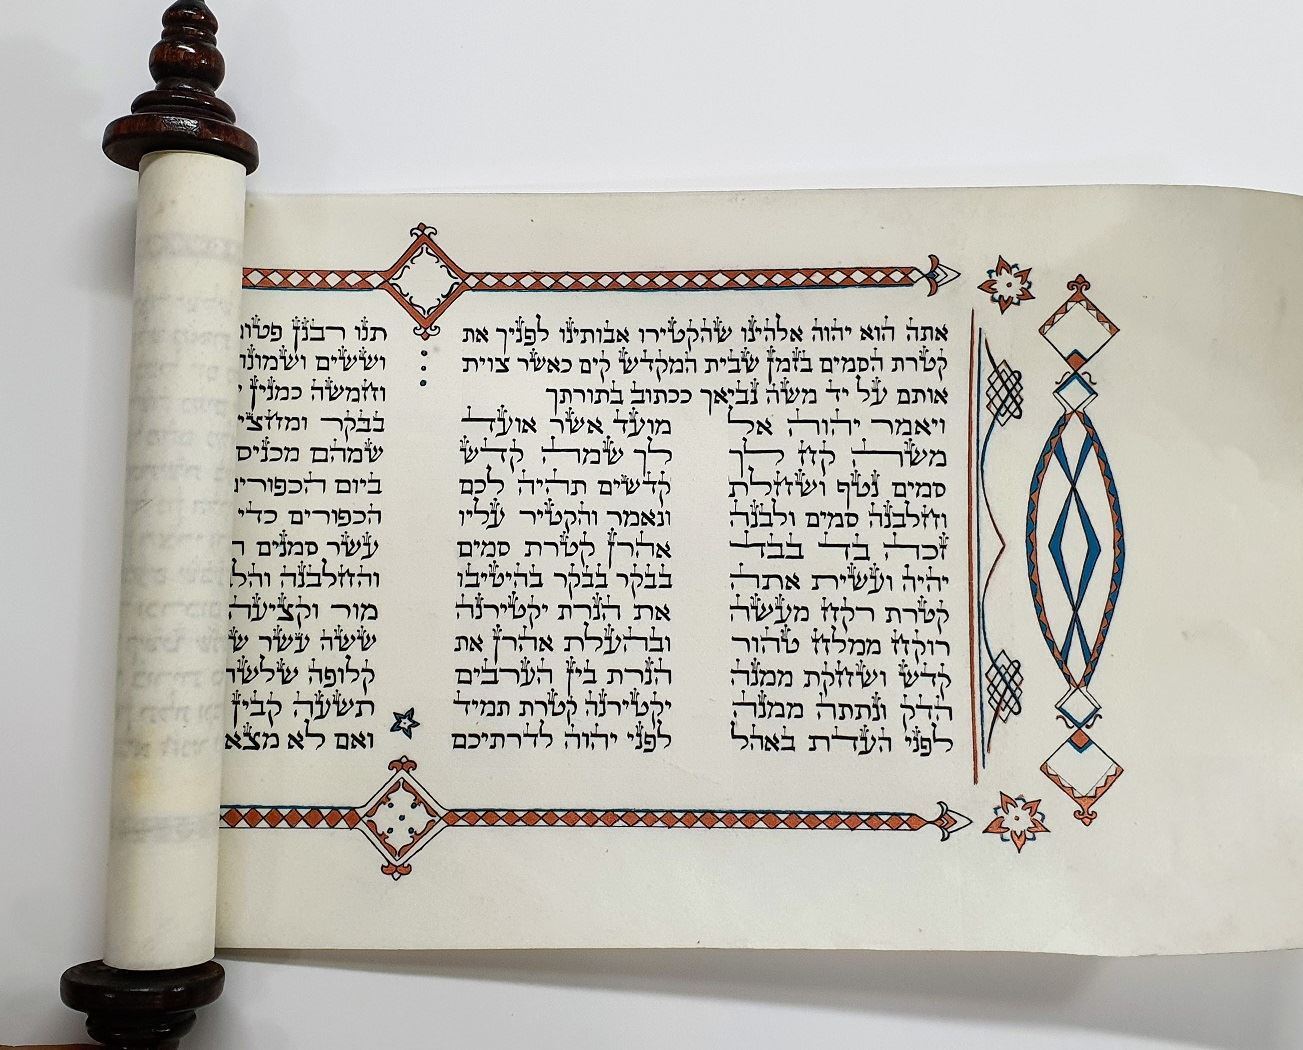 אתה הוא יהוה אלהינו שהקטירו אבותינו לפניך את
קטרת הסמים בזמן שבית המקדש קים כאשר צוית
אותם על יד משה נביאך ככתוב בתורתך
ויאמר יהוה אל
משה קח לך
סמים נטף ושחלת
וחלבנה סמים ולבנה
זכה בד בבד
יהיה ועשית אתה
קטרת רקח מעשה
רוקח ממלח טהור
קדש ושחקת ממנה
הדק ונתתה ממנה
לפני העדת באהל
מועד אשר אועד
לך שמה קדש
קדשים תהיה לכם
ונאמר והקטיר עליו
אהרן קטרת סמים
בבקר בבקר בהיטיבו
את הנרת יקטירנה
ובהעלת אהרן את
הנרת בין הערבים
יקטירנה קטרת תמיד
לפני יהוה לדרתיכם
תנו רבנן
וששים
וחמשה כמנין
בבקר
שמהם מכניס
ביום
הכפורים כדי
עשר סמנים
והחלבנה
מור וקציעה
ששה עשר
קלופה
תשעה קבין
ואם לא מצא